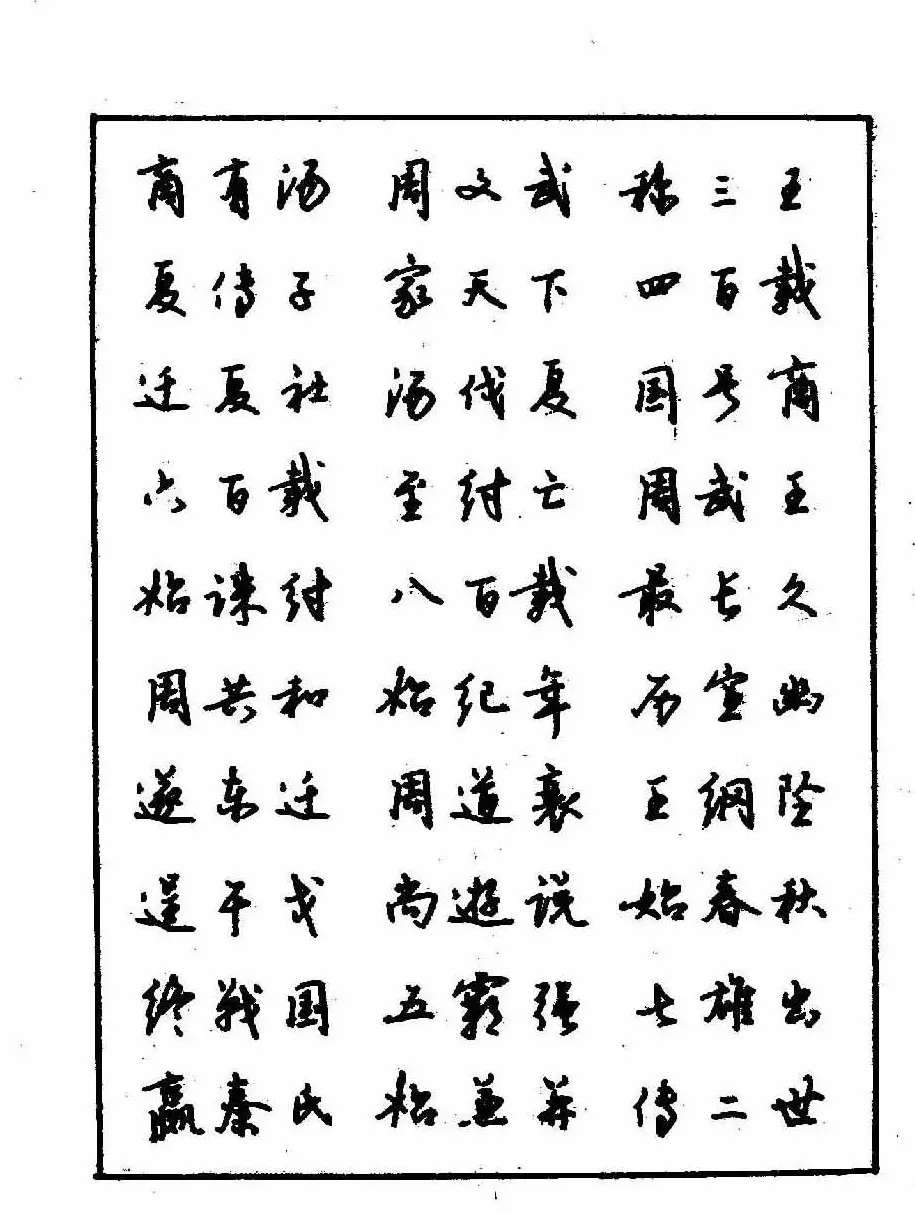 商有汤 周文武 称三王
夏传子 家天下 四百载
迁夏社 汤伐夏 国号商
六百载 至纣亡 周武王
始诛纣 八百载 最长久
周共和 始纪年 历宣幽
遂东迁 周道衰 王纲坠
逞干戈 尚遊说 始春秋
终战国 五霸强 七雄出
嬴秦氏 始兼并 传二世